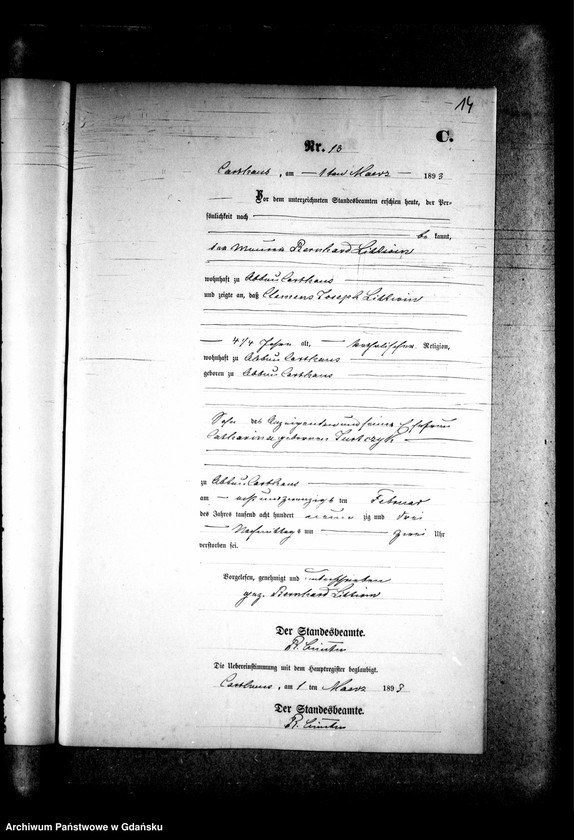 14
C.
Nr. 13
Carthaus, am 1ten Maerz 1893
Vor dem unterzeichneten Standesbeamten erschien heute, der Per-
sönlichkeit nach
be kannt,
der Maurer Bernhard
wohnhaft zu Abbau Carthaus
und zeigte an, daß Clemens Joseph
4 1/4 Jahre alt, katholischer Religion,
wohnhaft zu Abbau Carthaus
geboren zu Abbau Carthaus
Sohn des Anzeigenden und seiner Ehefrau
Catharina geborenen
zu Abbau Carthaus
am acht und zwanzigsten Februar
des Jahres tausend acht hundert neun zig und drei
Nachmittags um zwei Uhr
verstorben sei.
Vorgelesen, genehmigt und unterschrieben
gez. Bernhard
Der Standesbeamte.
Die Uebereinstimmung mit dem Hauptregister beglaubigt.
Carthaus, am 1 ten Maerz 1893
Der Standesbeamte.
Archiwum Państwowe w Gdańsku